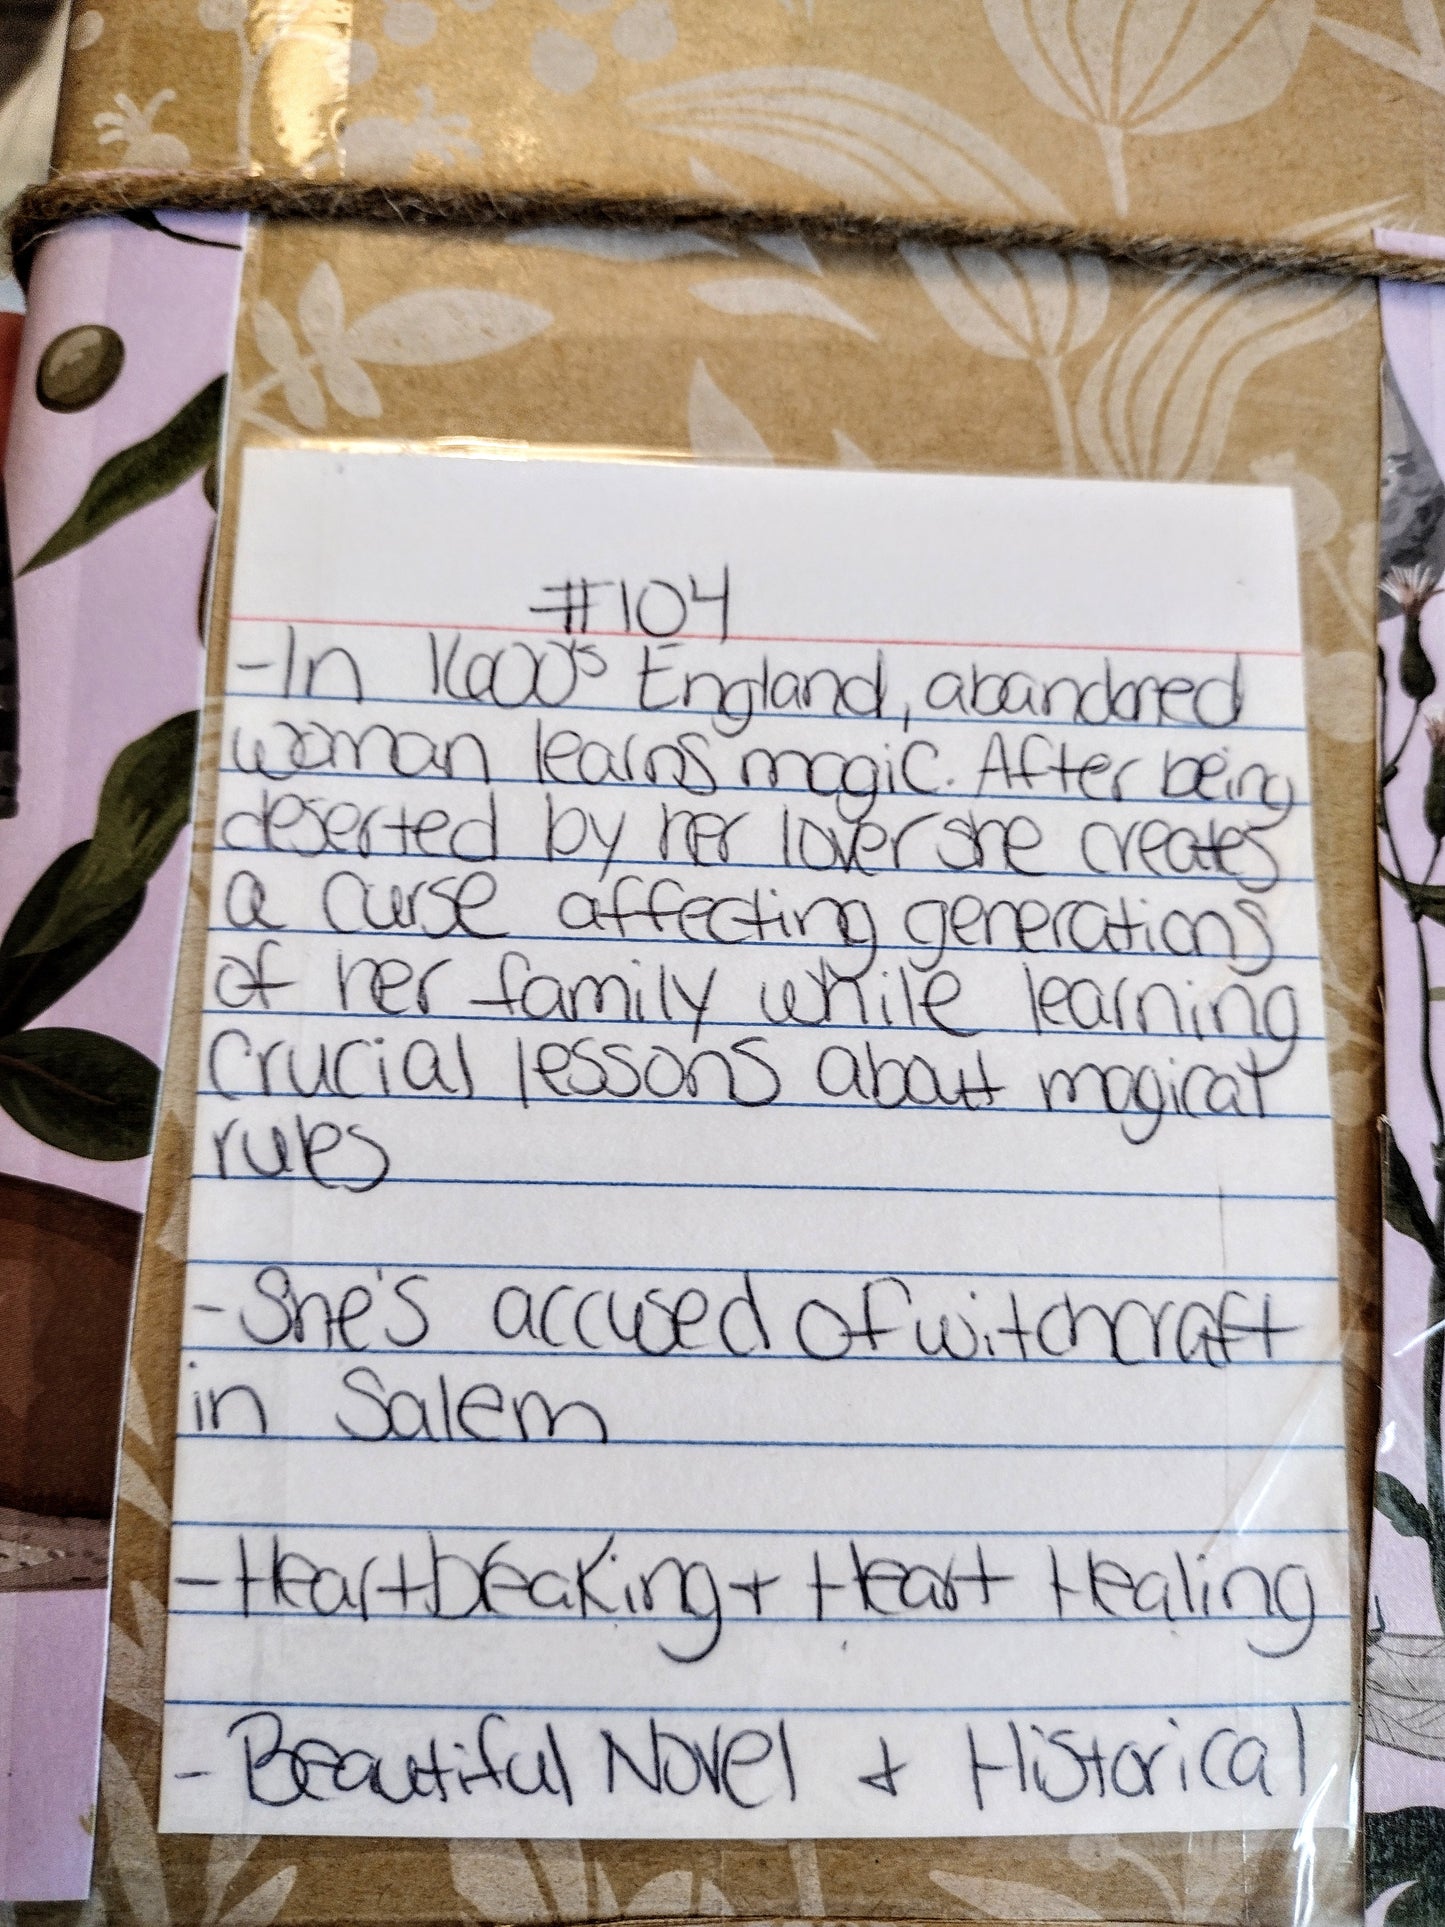 #104
-In 1600's England, abandoned
woman learns magic. After being
deserted by her lover she creates
a curse affecting generations
of her family while learning
crucial lessons about magical
rules
-She's accused of witchcraft
in Salem
-Heartbreaking + Heart Healing
-Beautiful Novel + Historical